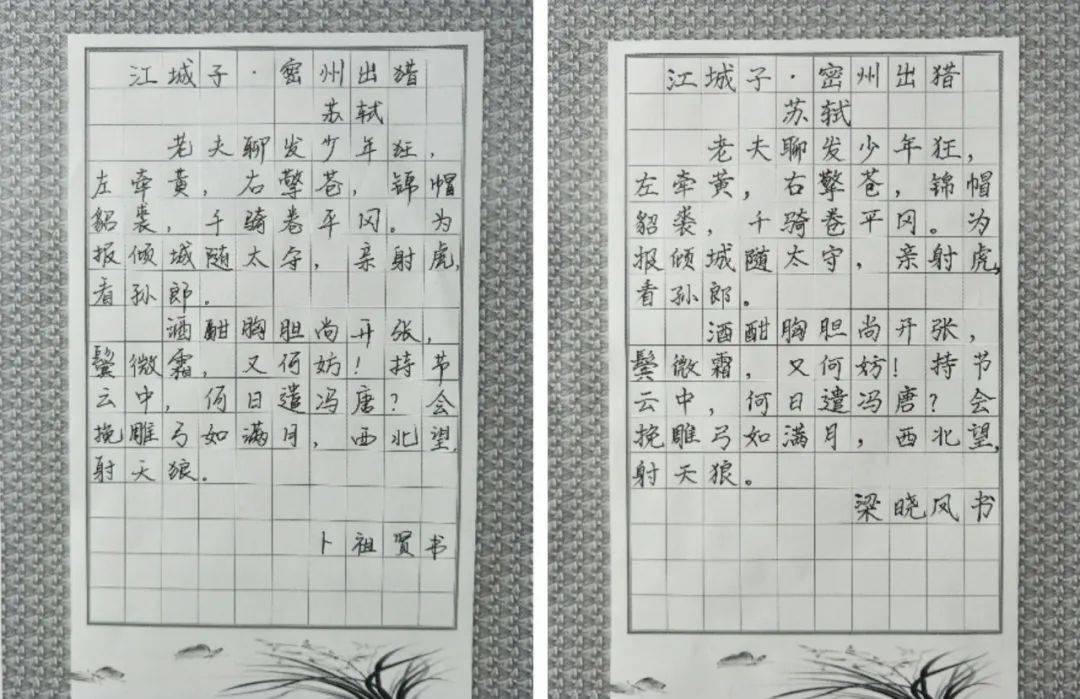 江城子·密州出猎
苏轼
老夫聊发少年狂，
左牵黄，右擎苍，锦帽
貂裘，千骑卷平冈。为
报倾城随太守，亲射虎，
看孙郎。
酒酣胸胆尚开张，
鬓微霜，又何妨！持节
云中，何日遣冯唐？会
挽雕弓如满月，西北望，
射天狼。
卜祖贤书
江城子·密州出猎
苏轼
老夫聊发少年狂，
左牵黄，右擎苍，锦帽
貂裘，千骑卷平冈。为
报倾城随太守，亲射虎，
看孙郎。
酒酣胸胆尚开张，
鬓微霜，又何妨！持节
云中，何日遣冯唐？会
挽雕弓如满月，西北望，
射天狼。
梁晓凤书